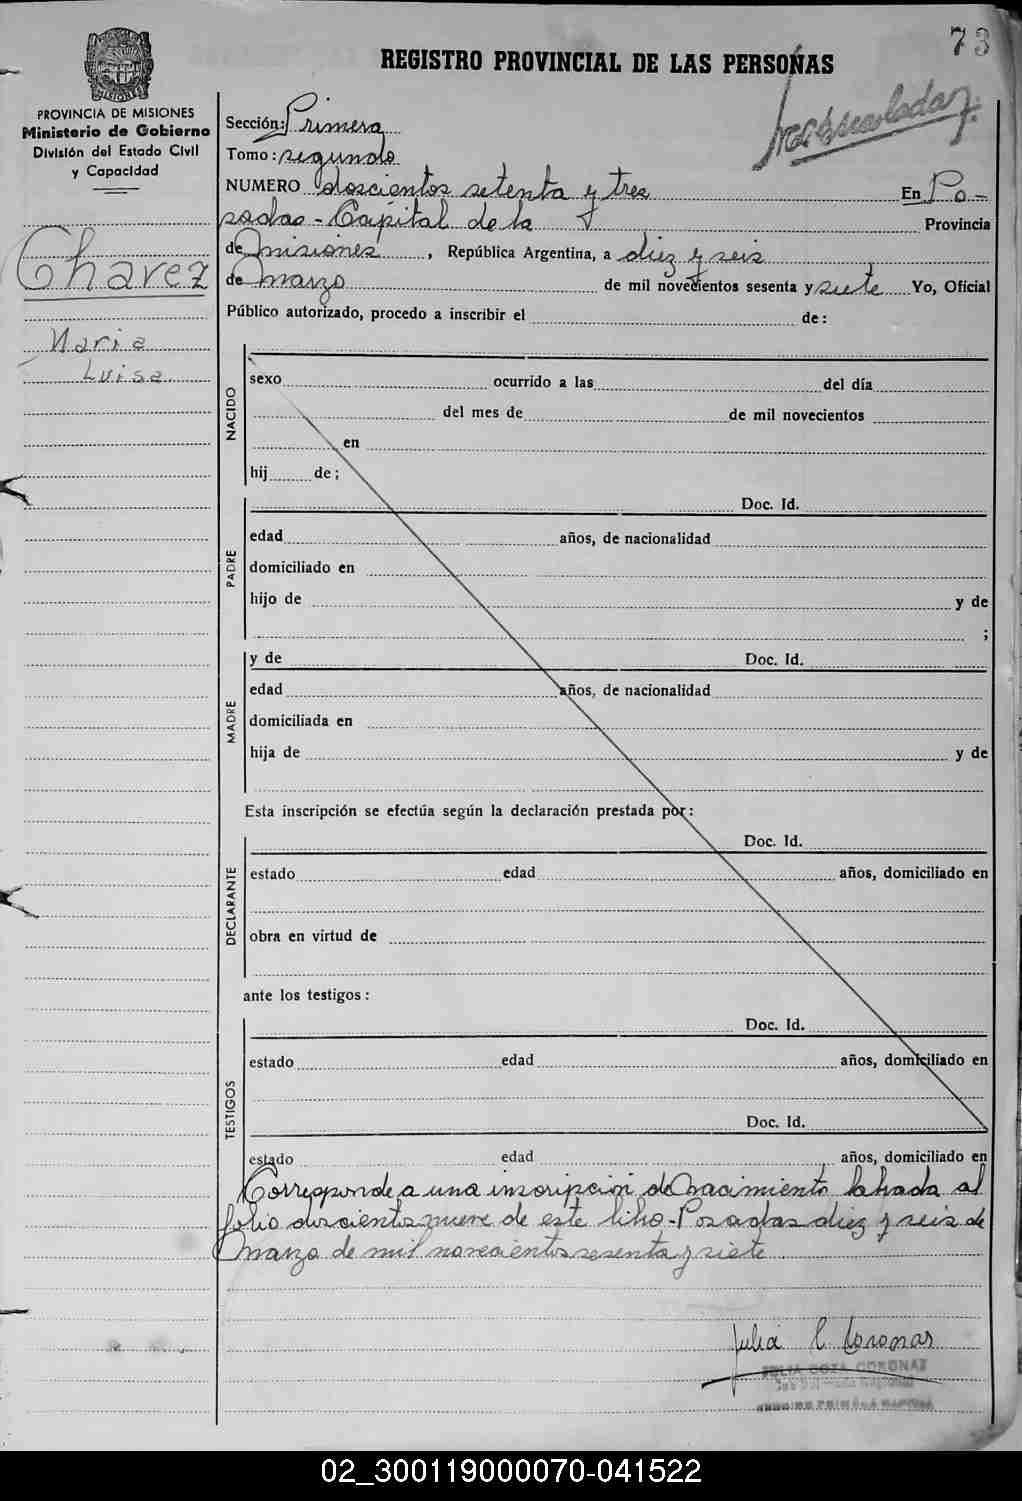 73
REGISTRO PROVINCIAL DE LAS PERSONAS
PROVINCIA DE MISIONES
Ministerio de Gobierno
División del Estado Civil
y Capacidad
Chavez
Maria
Luisa
Sección: Primera
Tomo: segundo
NUMERO doscientos setenta y tres En Po-
sadas - Capital de la Provincia
de Misiones, República Argentina, a diez y seis
de Marzo de mil novecientos sesenta y siete Yo, Oficial
Público autorizado, procedo a inscribir el de:
NACIDO
sexo ocurrido a las del día
del mes de de mil novecientos
en
hij de;
PADRE
Doc. Id.
edad años, de nacionalidad
domiciliado en
hijo de y de
;
MADRE
y de Doc. Id.
edad años, de nacionalidad
domiciliada en
hija de y de
Esta inscripción se efectúa según la declaración prestada por:
DECLARANTE
Doc. Id.
estado edad años, domiciliado en
obra en virtud de
ante los testigos:
TESTIGOS
Doc. Id.
estado edad años, domiciliado en
Doc. Id.
estado edad años, domiciliado en
Corresponde a una inscripcion de Nacimiento labrada al
folio doscientos nueve de este libro - Posadas diez y seis de
Marzo de mil novecientos sesenta y siete
Julia C Coronas
JULIA COZA CORONAZ
02_300119000070-041522